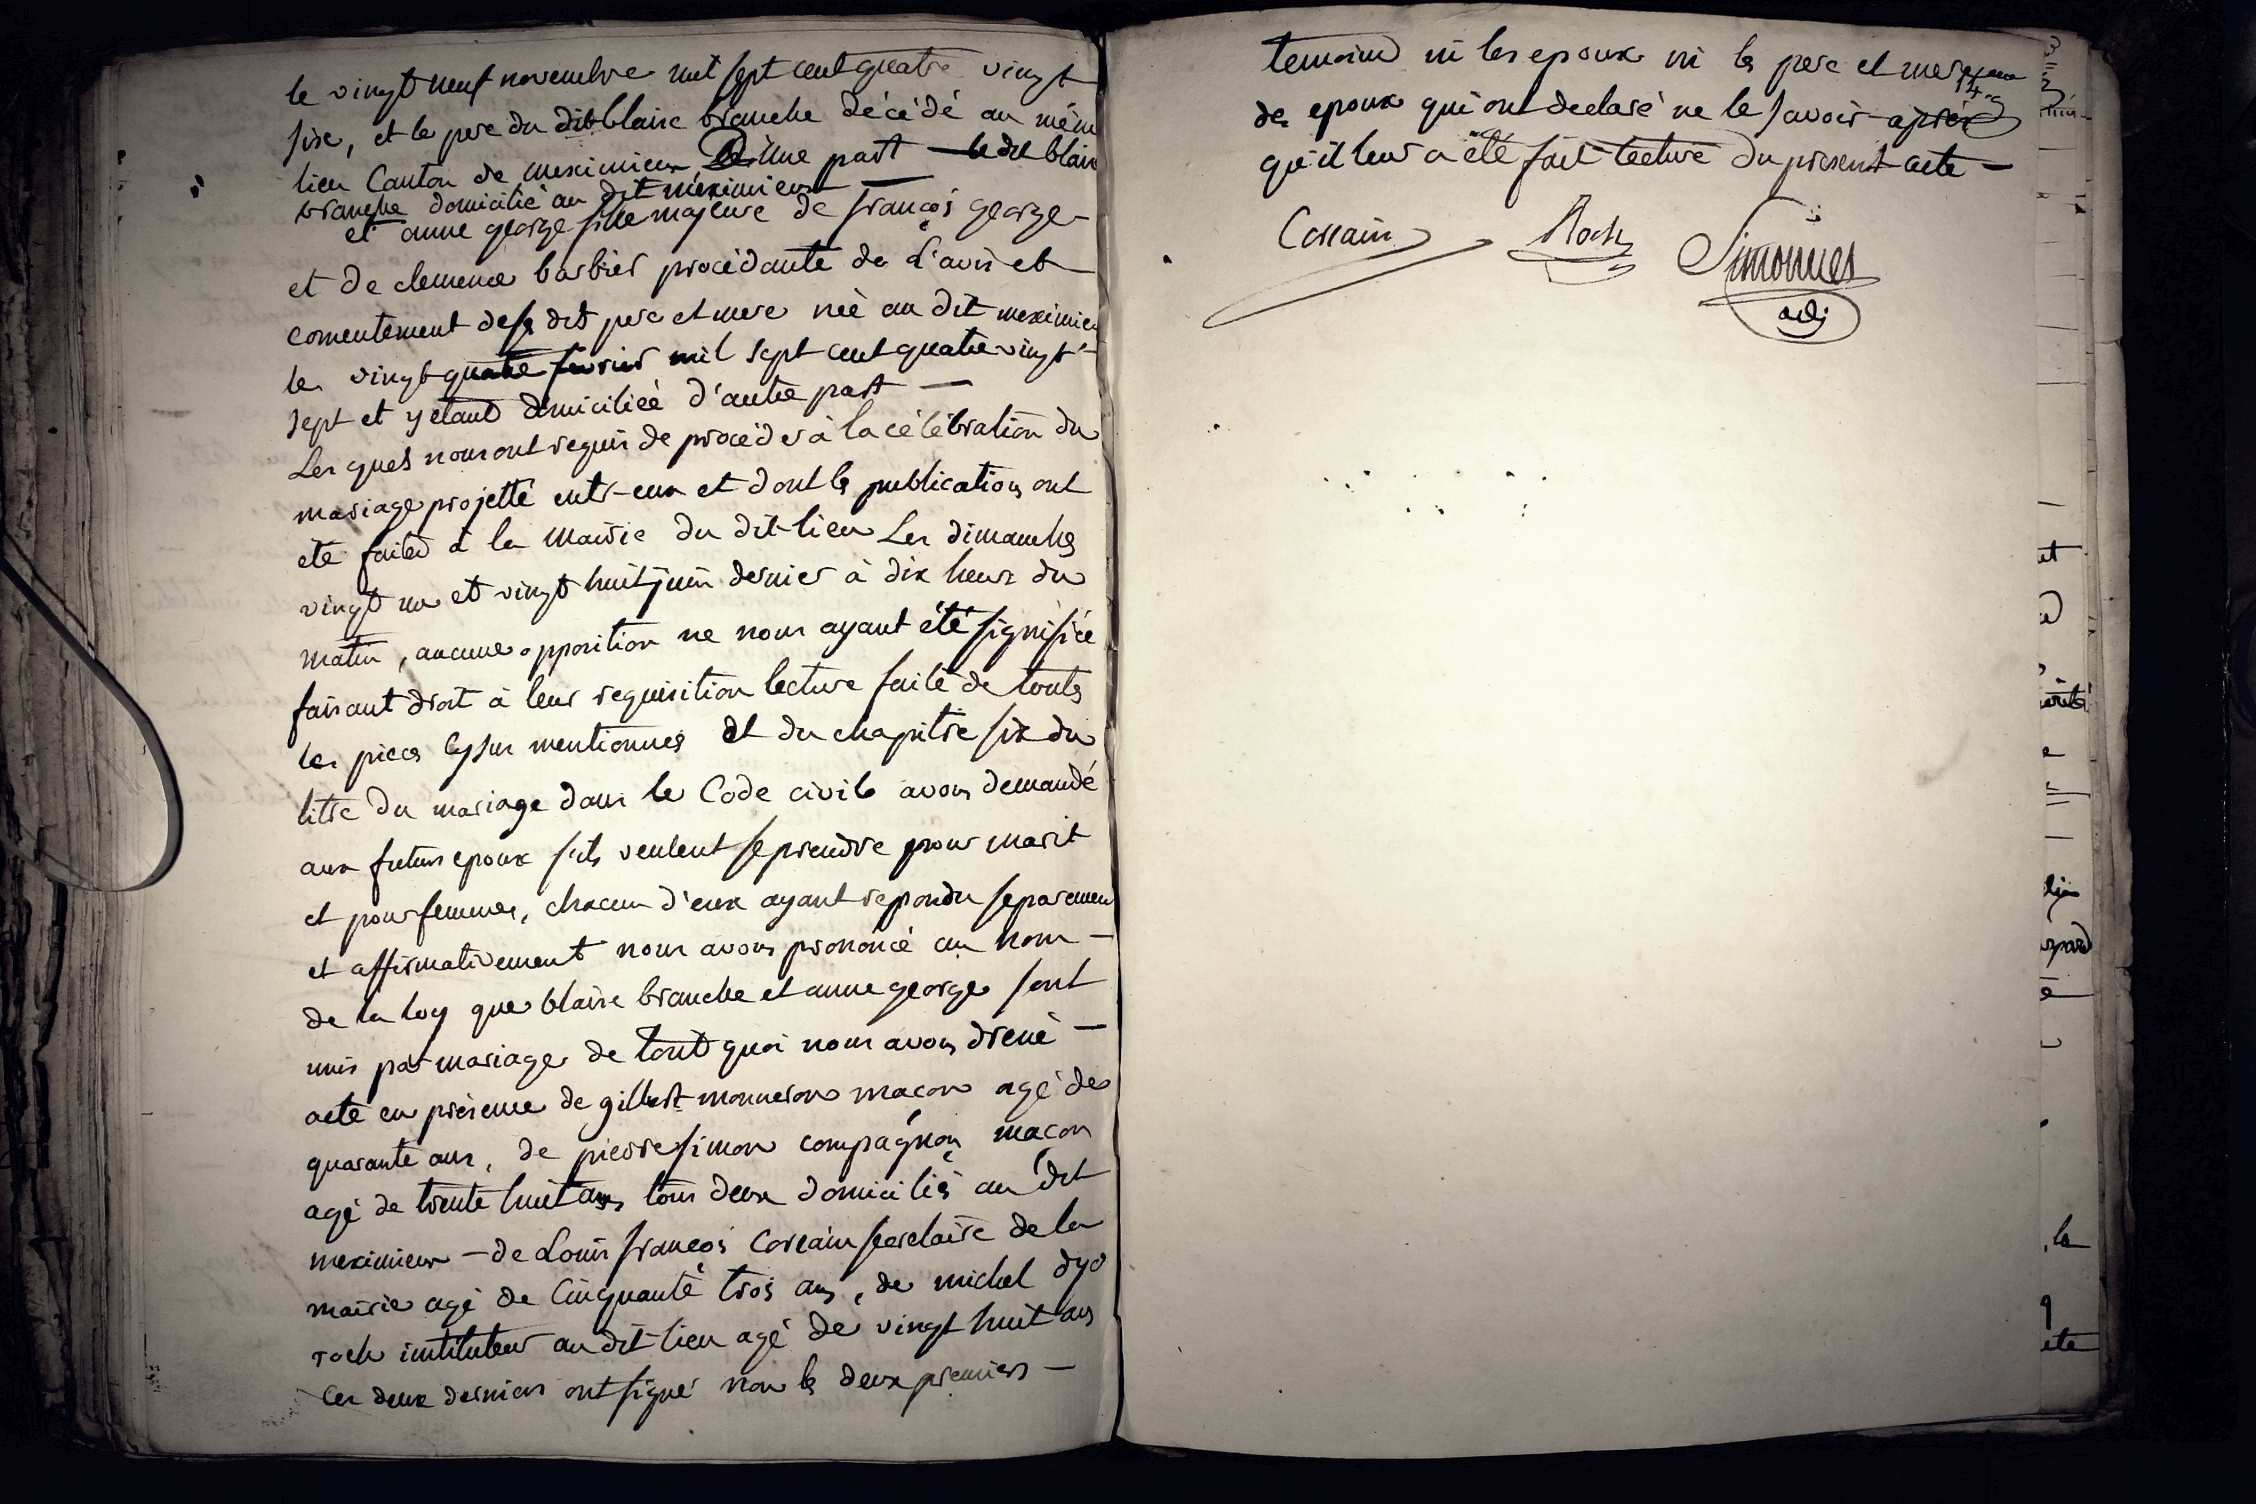 le vingt neuf novembre mil sept cent quatre vingt
six, et le pere du dit blaise branche décédé au même
lieu Canton de meximieux D'une part — le dit blaise
branche domicilié au dit meximieux —
et anne george fille majeure de françois george —
et de clemence barbier procédante de L'avis et
consentement de ses dits pere et mere née au dit meximieux
le vingt quatre fevrier mil sept cent quatre vingt
sept et y etant domiciliée d'autre part —
Les quels nous ont requis de procéder à la célébration du
mariage projetté entr-eux et dont les publications ont
eté faites à la Mairie du dit-lieu Les dimanches
vingt un et vingt huit juin dernier à dix heure du
matin, aucune opposition ne nous ayant été signifiée
faisant droit à leur requisition lecture faite de toutes
les pieces cy sur mentionnés et du chapitre six du
titre du mariage dans le Code civile avons demandé
aux futurs epoux s'ils veulent se prendre pour marit
et pour femme, chacun d'eux ayant repondu separement
et affirmativement nous avons prononcé au nom —
de la loy que blaise branche et anne george sont
unis par mariage de tout quoi nous avons dressé —
acte en présence de gilbert monneron macon agé de
quarante ans, de pierre simon compagnon macon
agé de trente huit ans tous deux domiciliés au dit
meximieux — de Louis françois Corrain secretaire de la
mairie agé de Cinquante trois ans, de michel
roch instituteur au dit-lieu agé de vingt huit ans
Ces deux derniers ont signé non les deux premiers —
temoins ni les epoux ni les pere et mere
de epoux qui ont declaré ne le savoir après
qu'il leur a été fait lecture du present acte —
Corrain Roch Simonnet
adj